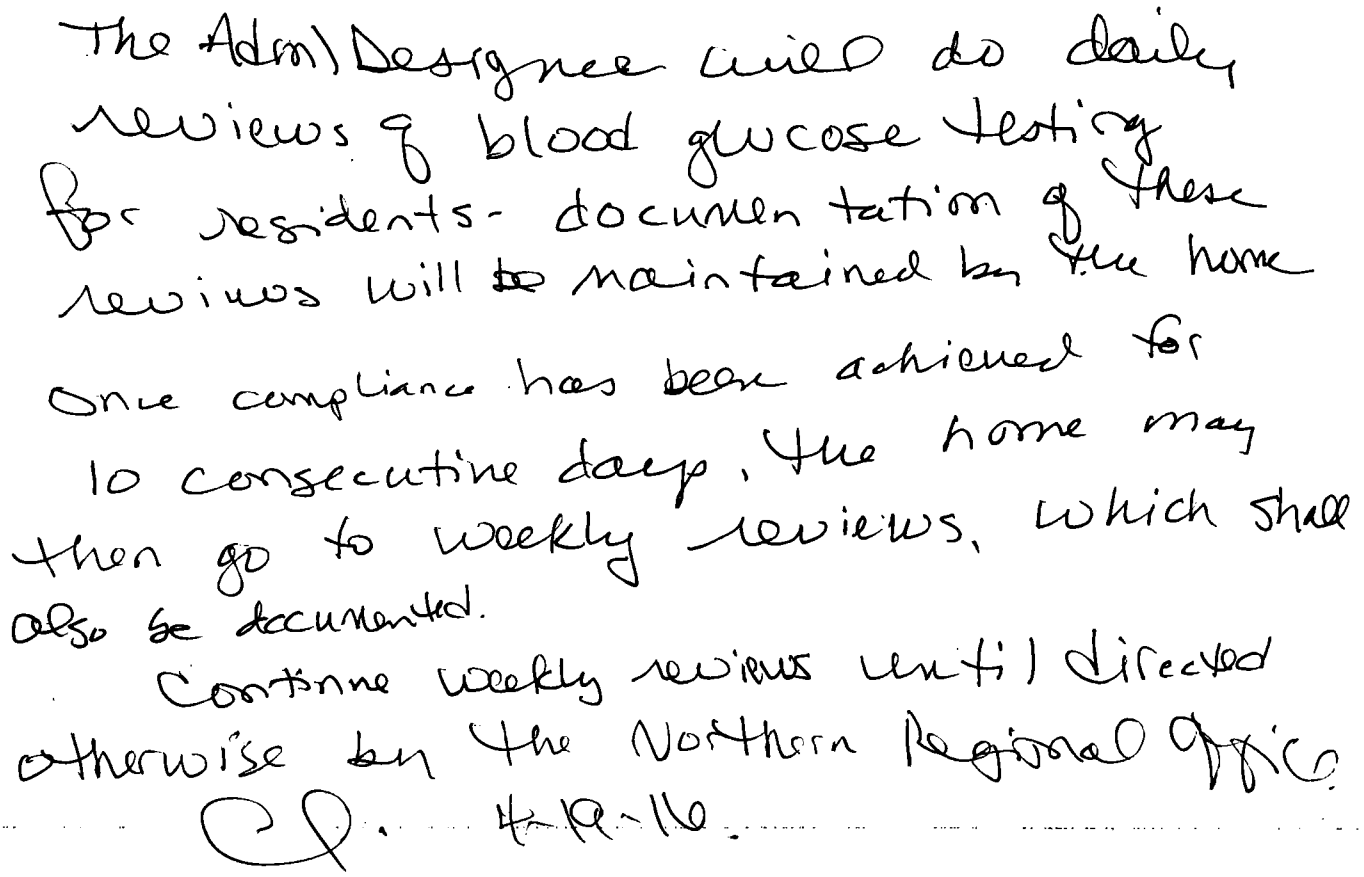 The Adm\Designee will do daily
reviews of blood glucose testing
for residents - documentation of these
reviews will be maintained by the home
Once compliance has been achieved for
10 consecutive days, the home may
then go to weekly reviews, which shall
also be documented.
Continue weekly reviews until directed
otherwise by the Northern Regional Office.
4-19-16.